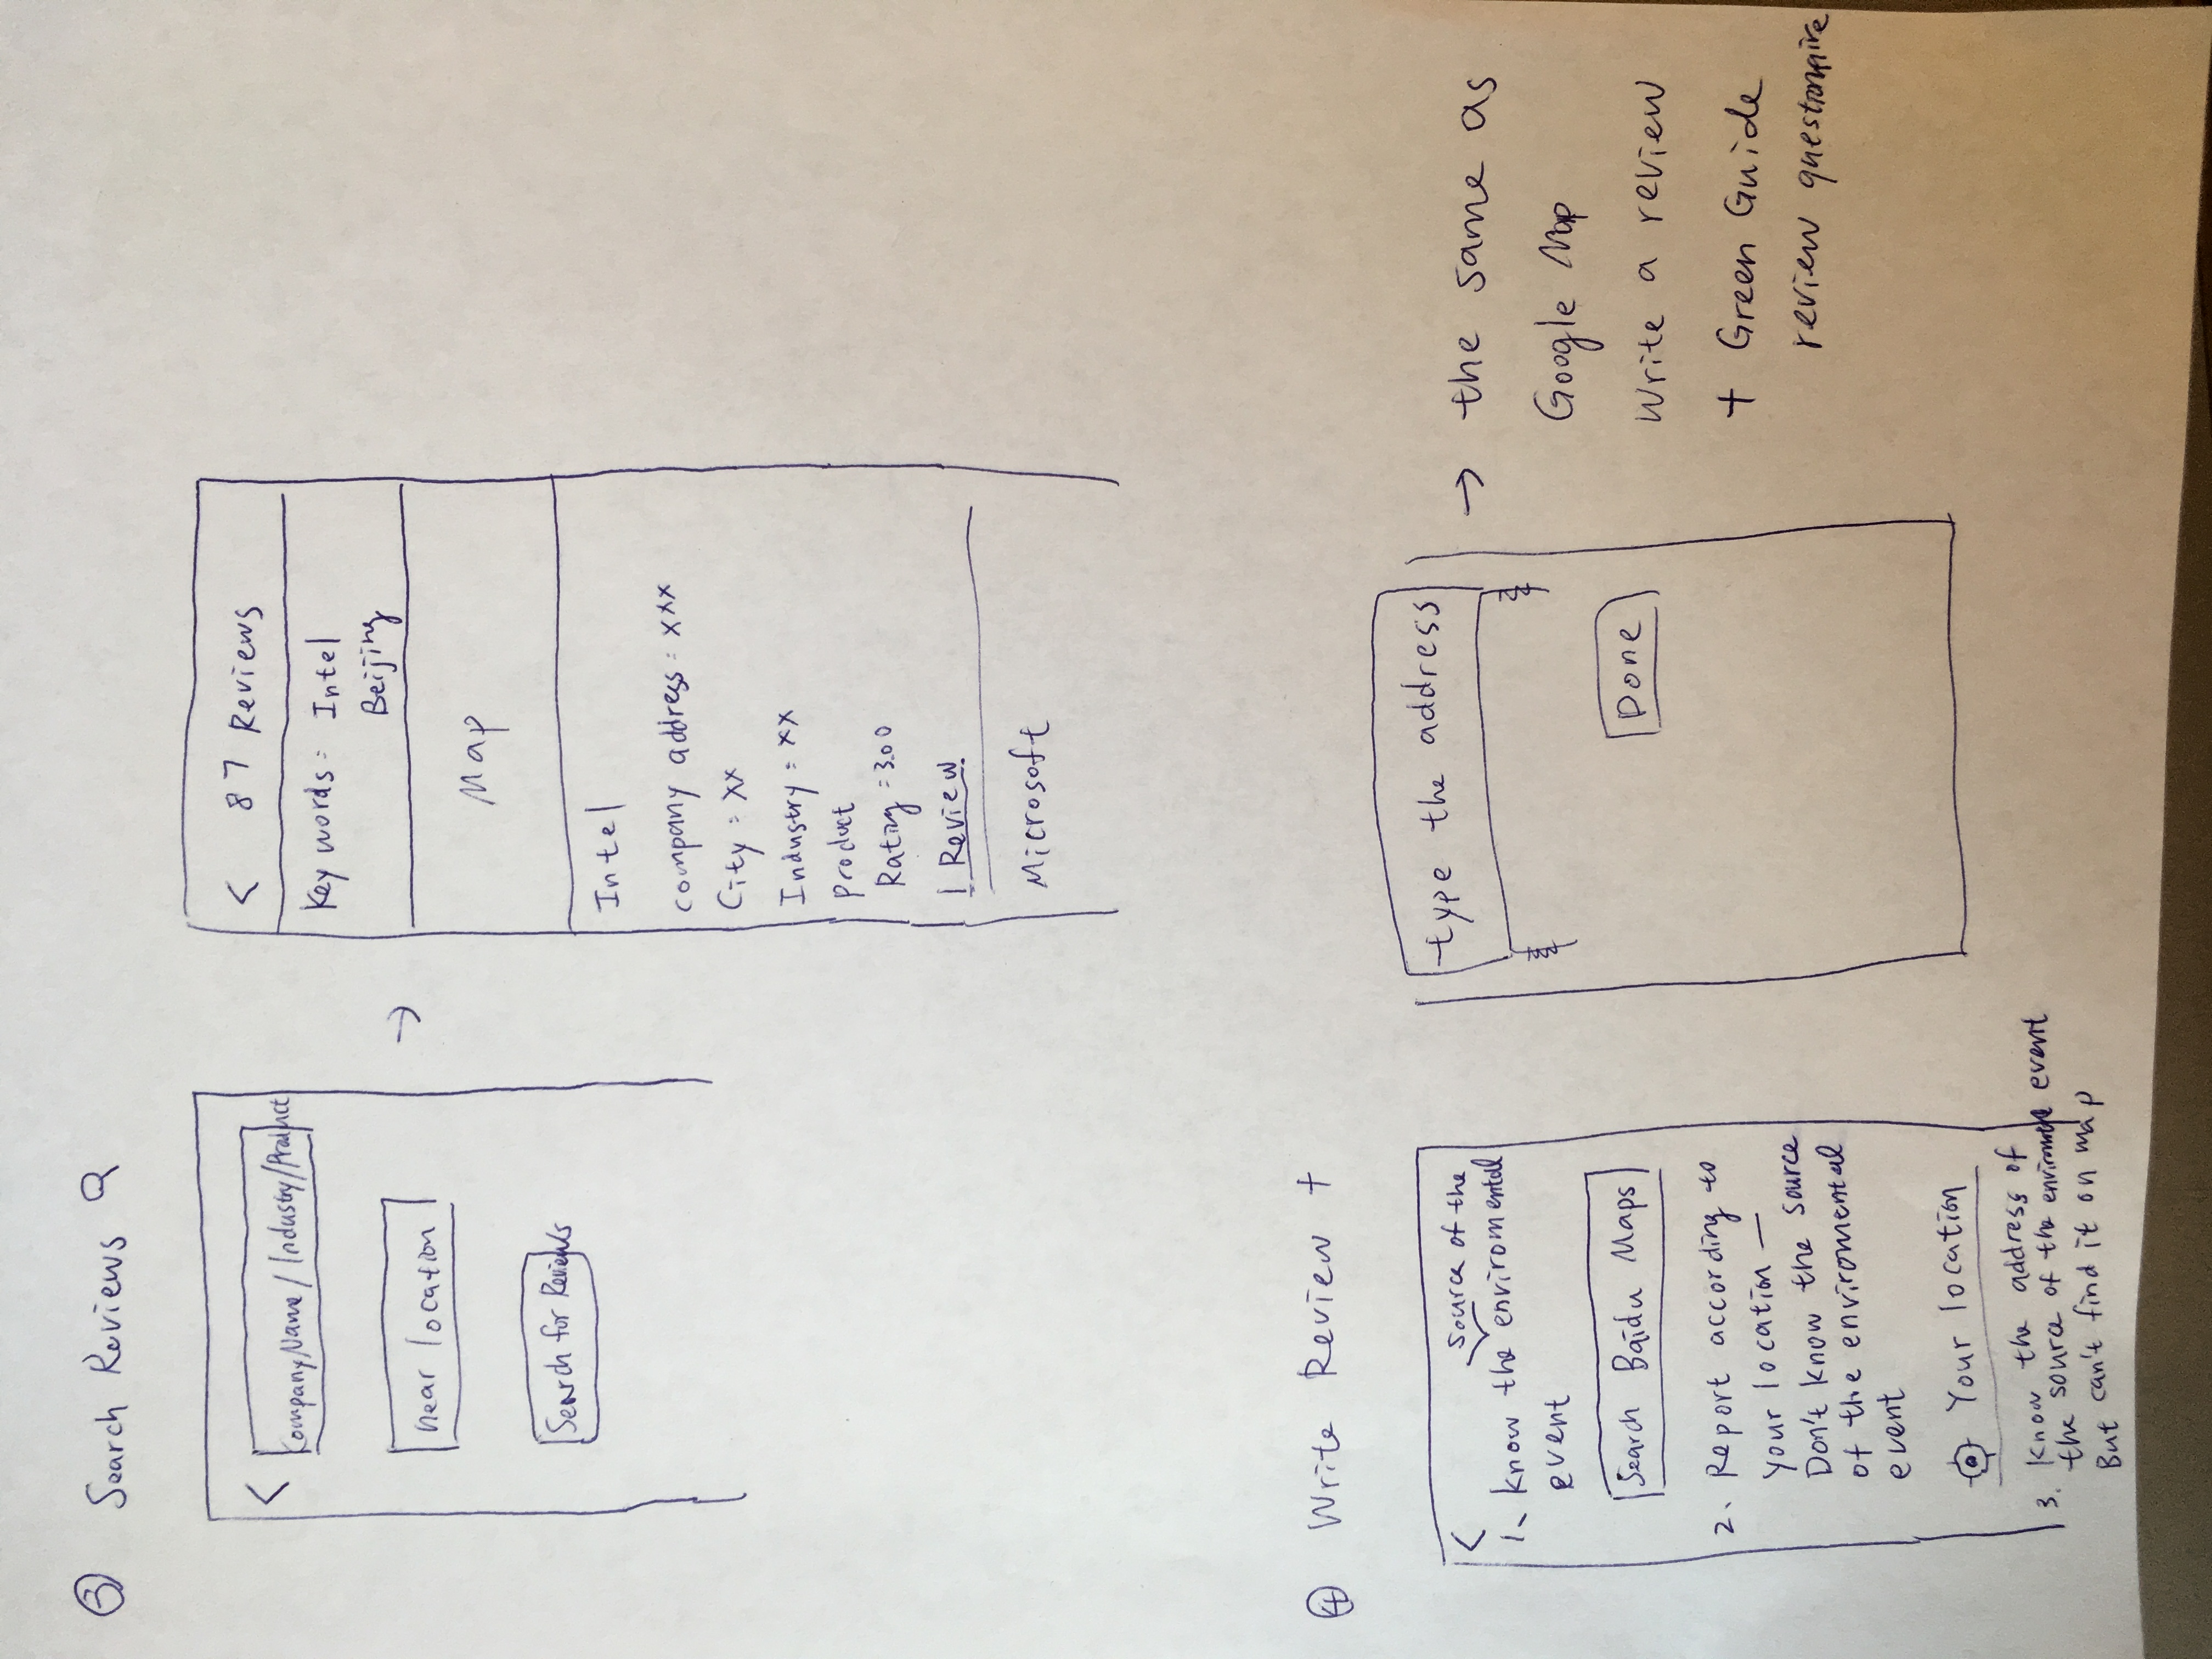 ③ Search Reviews
<
Company Name / Industry/Product
near location
Search for Reviews
→
< 87 Reviews
Key words: Intel
Beijing
Map
Intel
company address: xxx
City: xx
Industry: xx
product
Rating: 3.00
1 Review
Microsoft
④ Write Review +
<
source of the
1、 know the enviromental
event
Search Baidu Maps
2、 Report according to
your location —
Don't know the source
of the enviromental
event
Your location
3. Know the address of
the source of the event
But can't find it on map
type the address
Done
→ the same as
Google Map
Write a review
+ Green Guide
review questionnaire